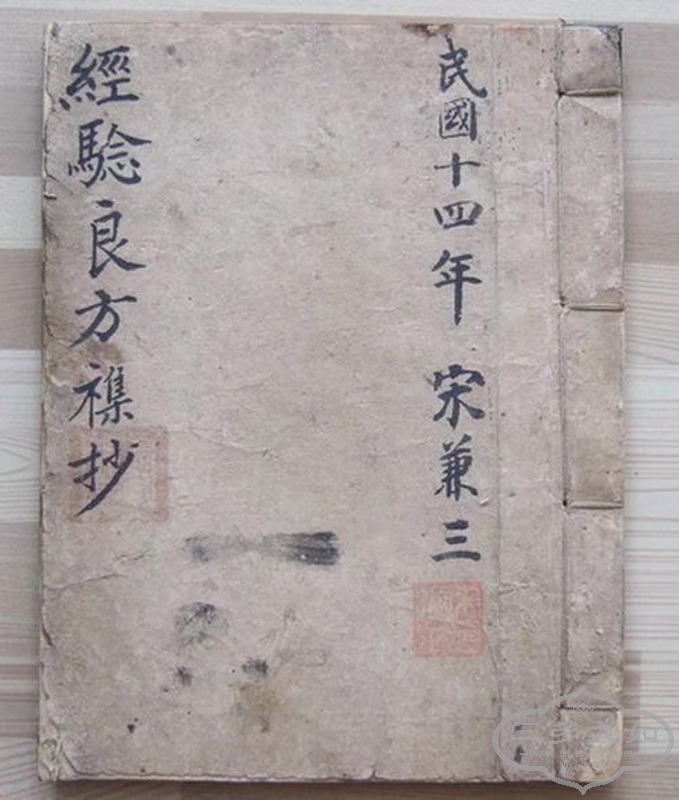 民國十四年 宋兼三
經騐良方襍抄